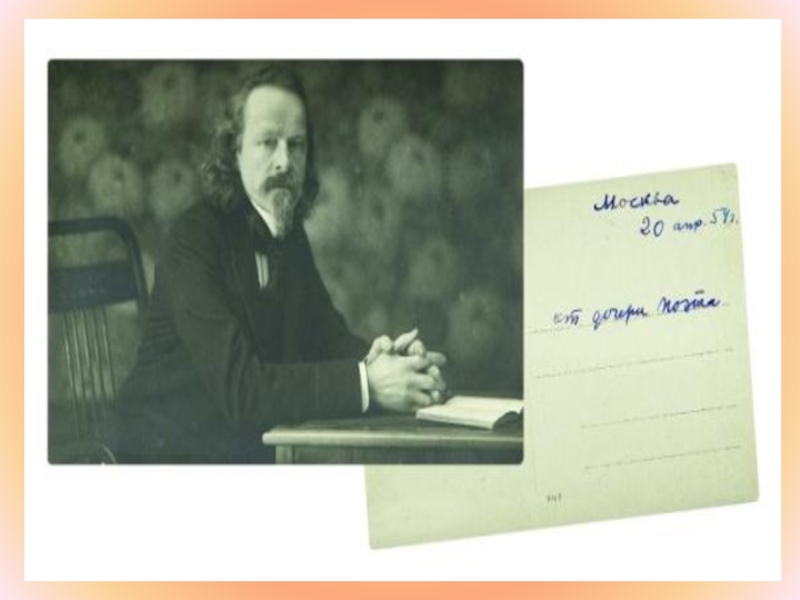 Москва
20 апр. 54г.
от дочери поэта